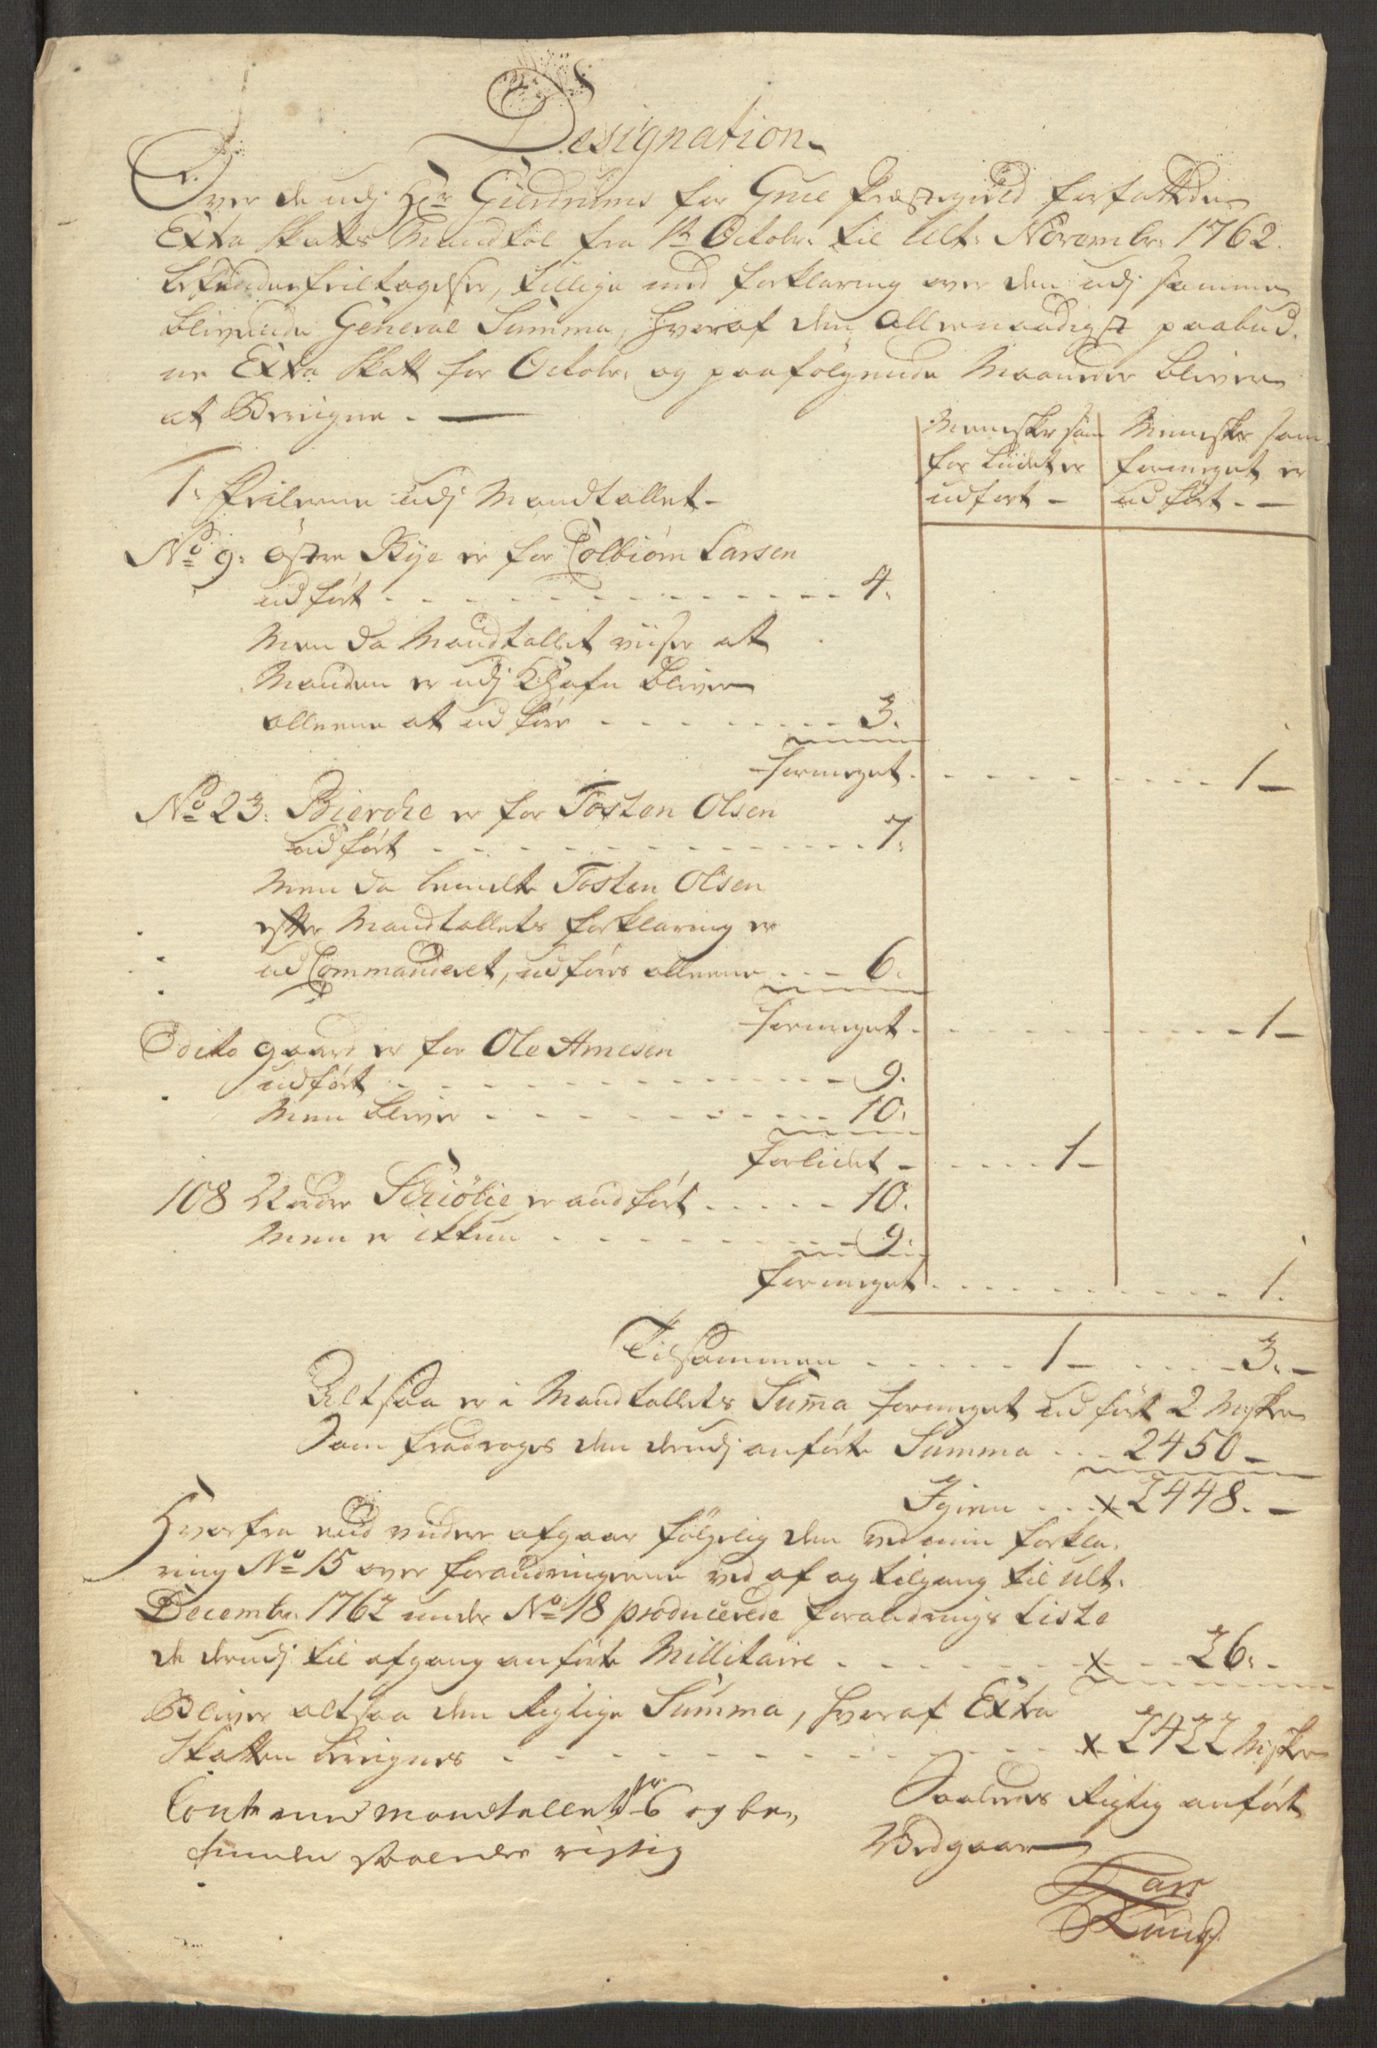 Designation
Over de udj Hr Gierdrums for Grue Præstegield forfattede
Extra Skatts Mandtal fra 1te Octobr: til Ult: Novembr: 1762.
befundne feiltagelser, tillige med forklaring over den udj samme
blivende General Summa, hvoraf den allernaadigst paabud-
ne Extra Skatt for Octobr: og paafølgende Maaneder bliver
at Beregne. —
Mennesker som for Lidet er udført —
Mennesker som formeget er udført. —
1. feilene udj Mandtallet —
No 9: Østre Bye er for Tolbiørn Larsen
udført . . . 4.
Men da Mandtallet viiser at
Manden er udj Khafn bliver
alleene at udføre . . . 3.
formeget . . . 1 —
No 23: Bierche er for Tosten Olsen
udført . . . 7.
Men da bemelte Tosten Olsen
efter Mandtallets forklaring er
udCommanderet, udføres alleene . . . 6.
formeget . . . 1 —
Ditto gaard er for Ole Arnesen
udført . . . 9.
Men bliver . . . 10.
forlidet . . . 1 —
108 Nedre Skiølie er anført . . . 10.
Men er ikkun . . . 9.
formeget . . . 1.
Tilsammen . . . 1 — . . . 3. —
Altsaa er i Mandtallets Suma formeget udført 2 Msker
Som fradrages den derudj anførte Summa . . 2450 —
Igien . . . x 2448. —
Hvorfra end videre afgaar følgelig den ved min forkla-
ring No 15 over forandringerne ved af og tilgang til ult.
Decembr: 1762 under No 18 producerede forandrings Liste
de derudj til afgang anførte Millitaire . . . x 26. —
Bliver altsaa den Rigtige Summa, hvoraf Extra
Skatten beregnes . . . x 2422 Msker
Saaledes Rigtig anført
Vedgaar
mandtallet 6 og be-
funden saaledes rigtig